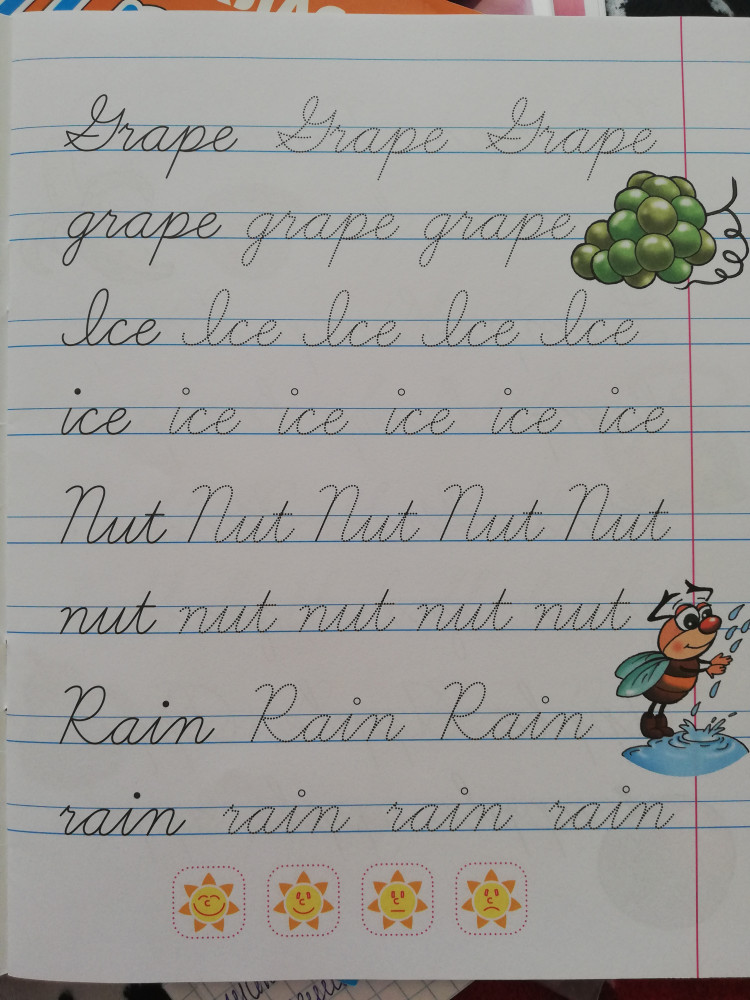 Grape Grape Grape
grape grape grape
Ice Ice Ice Ice Ice
ice ice ice ice ice ice
Nut Nut Nut Nut Nut
nut nut nut nut nut
Rain Rain Rain
rain rain rain rain